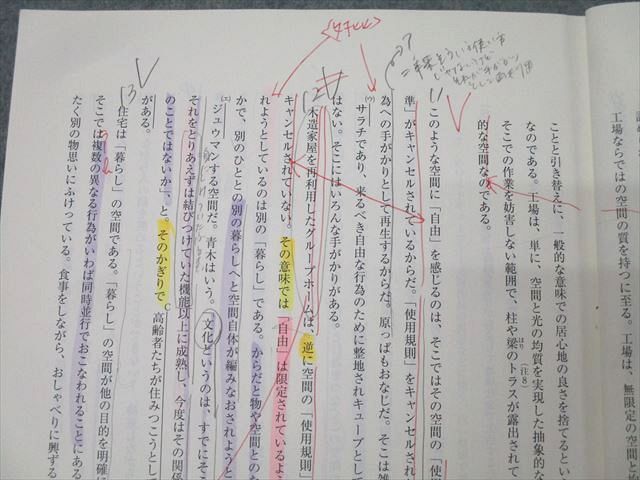 工場ならではの空間の質を持つに至る。
ことと引き替えに、一般的な意味での居心地の良さを捨てるとい
なのである。工場は、単に、空間と光の均質を実現した抽象的な
そこでの作業を妨害しない範囲で、柱や梁のトラスが露出されて
はり
（注8）
的な空間なのである。
11
このような空間に「自由」を感じるのは、そこではその空間の「使
準」がキャンセルされているからだ。「使用規則」をキャンセルされ
為への手がかりとして再生するからだ。原っぱもおなじだ。そこは雑
(ウ)
サラチであり、来るべき自由な行為のために整地されキューブとし
はない。そこにはいろんな手がかりがある。
12
木造家屋を再利用したグループホームは、逆に空間の「使用規則」
キャンセルされていない。その意味では「自由」は限定されているよ
れようとしているのは別の「暮らし」である。からだと物や空間とのた
か、別のひととの別の暮らしへと空間自体が編みなおされようと
(エ)
ジュウマンする空間だ。青木はいう。「文化というのは、すでにそこ
それをとりあえずは結びつけていた機能以上に成熟し、今度はその関係
のことではないか」、と。そのかぎりで
C
高齢者たちが住みつこうとして
がある。
13
住宅は「暮らし」の空間である。「暮らし」の空間が他の目的を明確に
そこでは複数の異なる行為がいわば同時並行でおこなわれることにある
たく別の物思いにふけっている。食事をしながら、おしゃべりに興ずる